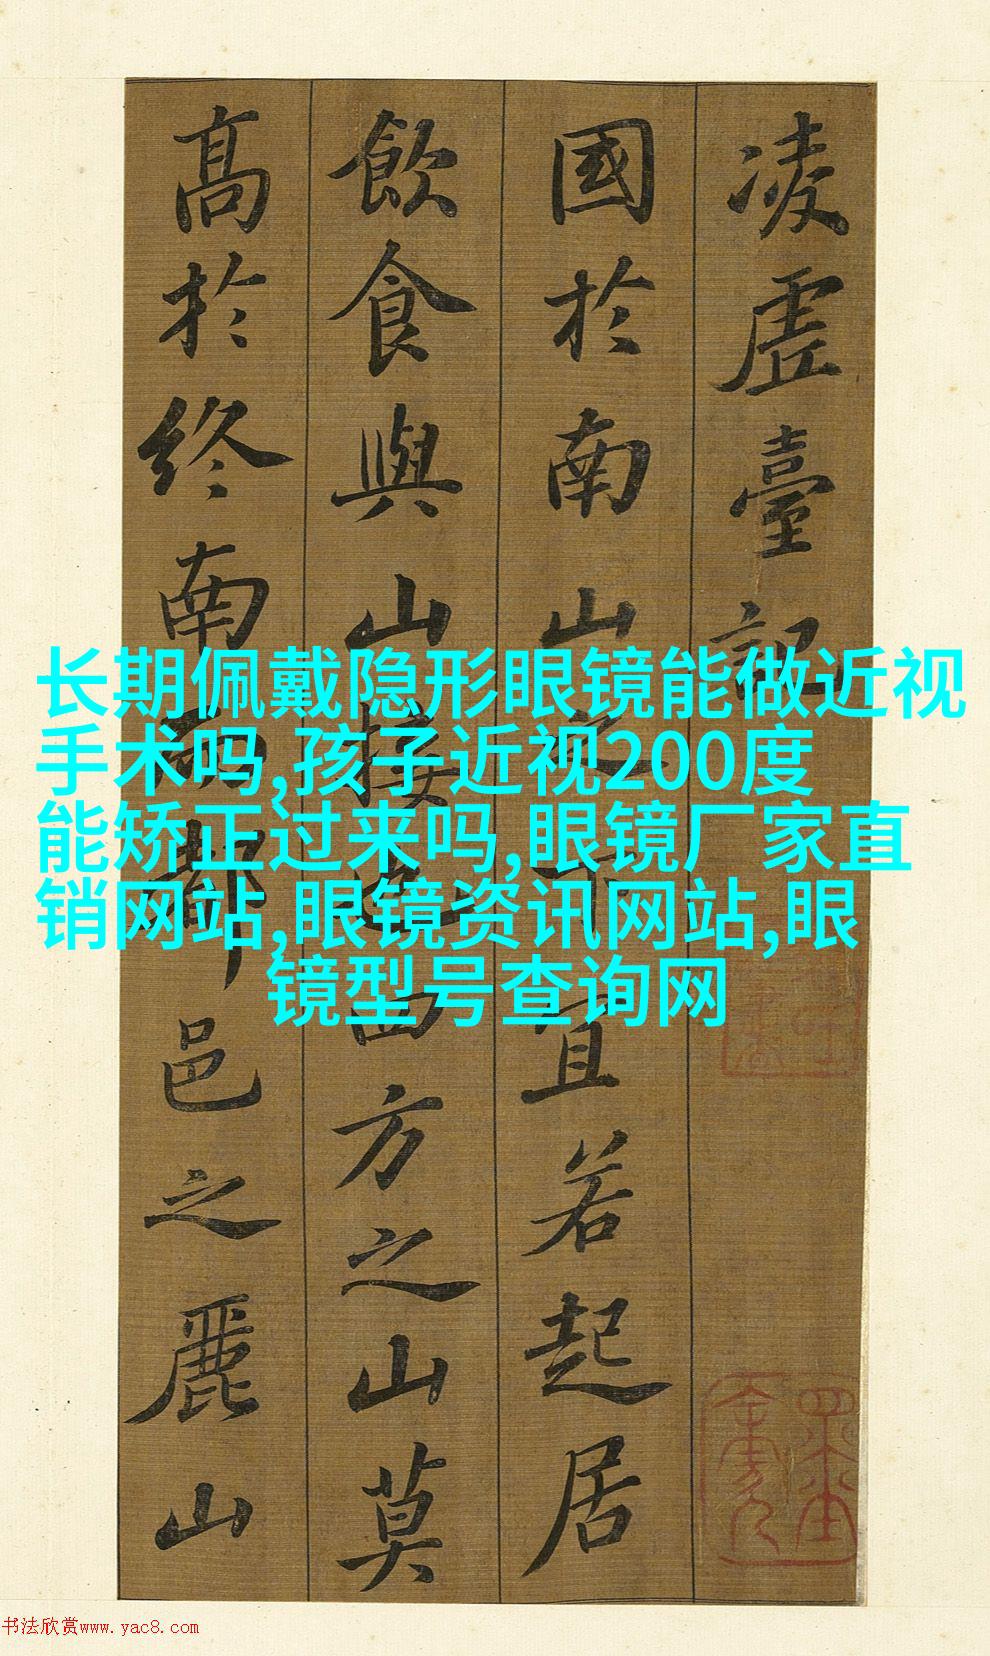 凌虛臺記
國於南山之下宜若起居
飲食與山接也四方之山莫
高於終南而都邑之麗山
长期佩戴隐形眼镜能做近视
手术吗,孩子近视200度
能矫正过来吗,眼镜厂家直
销网站,眼镜资讯网站,眼
镜型号查询网
书法欣赏www.yac8.com